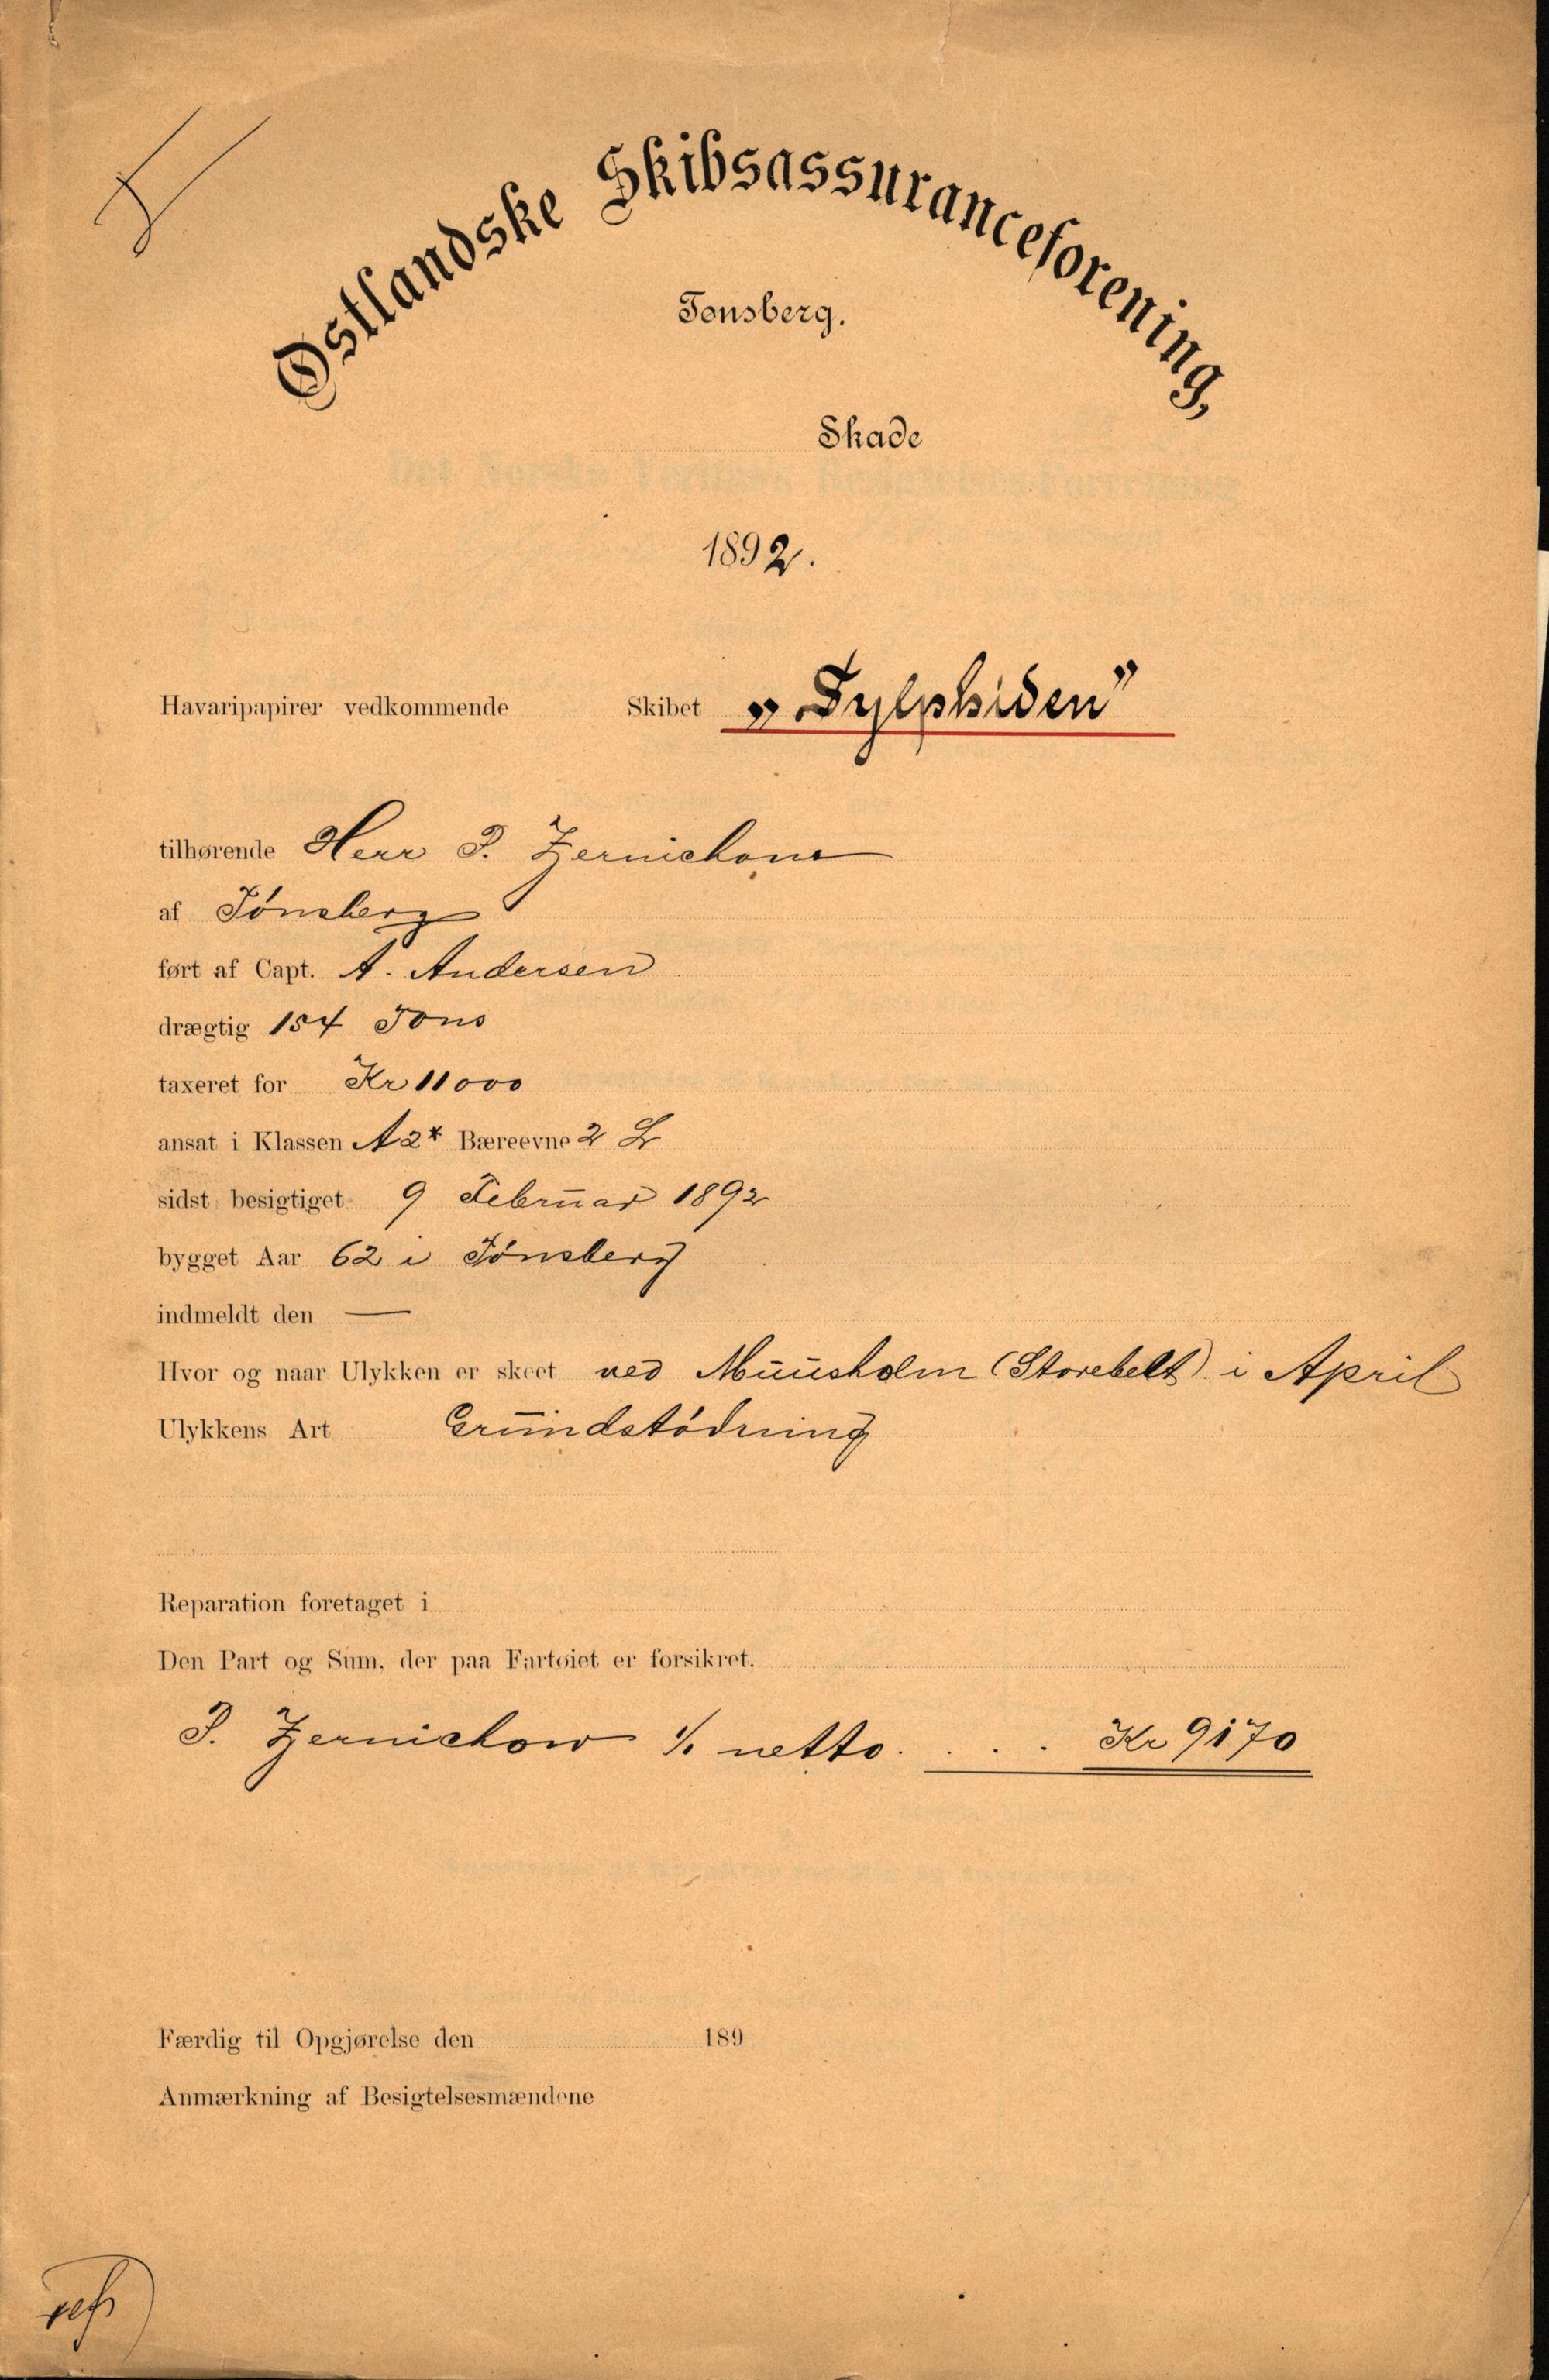 Østlandske Skibsassuranceforening,
Tønsberg.
Skade
1892.
Havaripapirer vedkommende Skibet „Sylphiden"
tilhørende Herr P. Zernichow
af Tønsberg
ført af Capt. A. Andersen
drægtig 154 Tons
taxeret for Kr 11000
ansat i Klassen A2* Bæreevne 2 L
sidst besigtiget 9 Februar 1892
bygget Aar 62 i Tønsberg
indmeldt den —
Hvor og naar Ulykken er skeet ved Muusholm (Storebelt) i April
Ulykkens Art Grundstødning
Reparation foretaget i
Den Part og Sum, der paa Fartøiet er forsikret.
P. Zernichow 1/1 netto. . . . Kr 9170
Færdig til Opgjørelse den 189
Anmærkning af Besigtelsesmændene